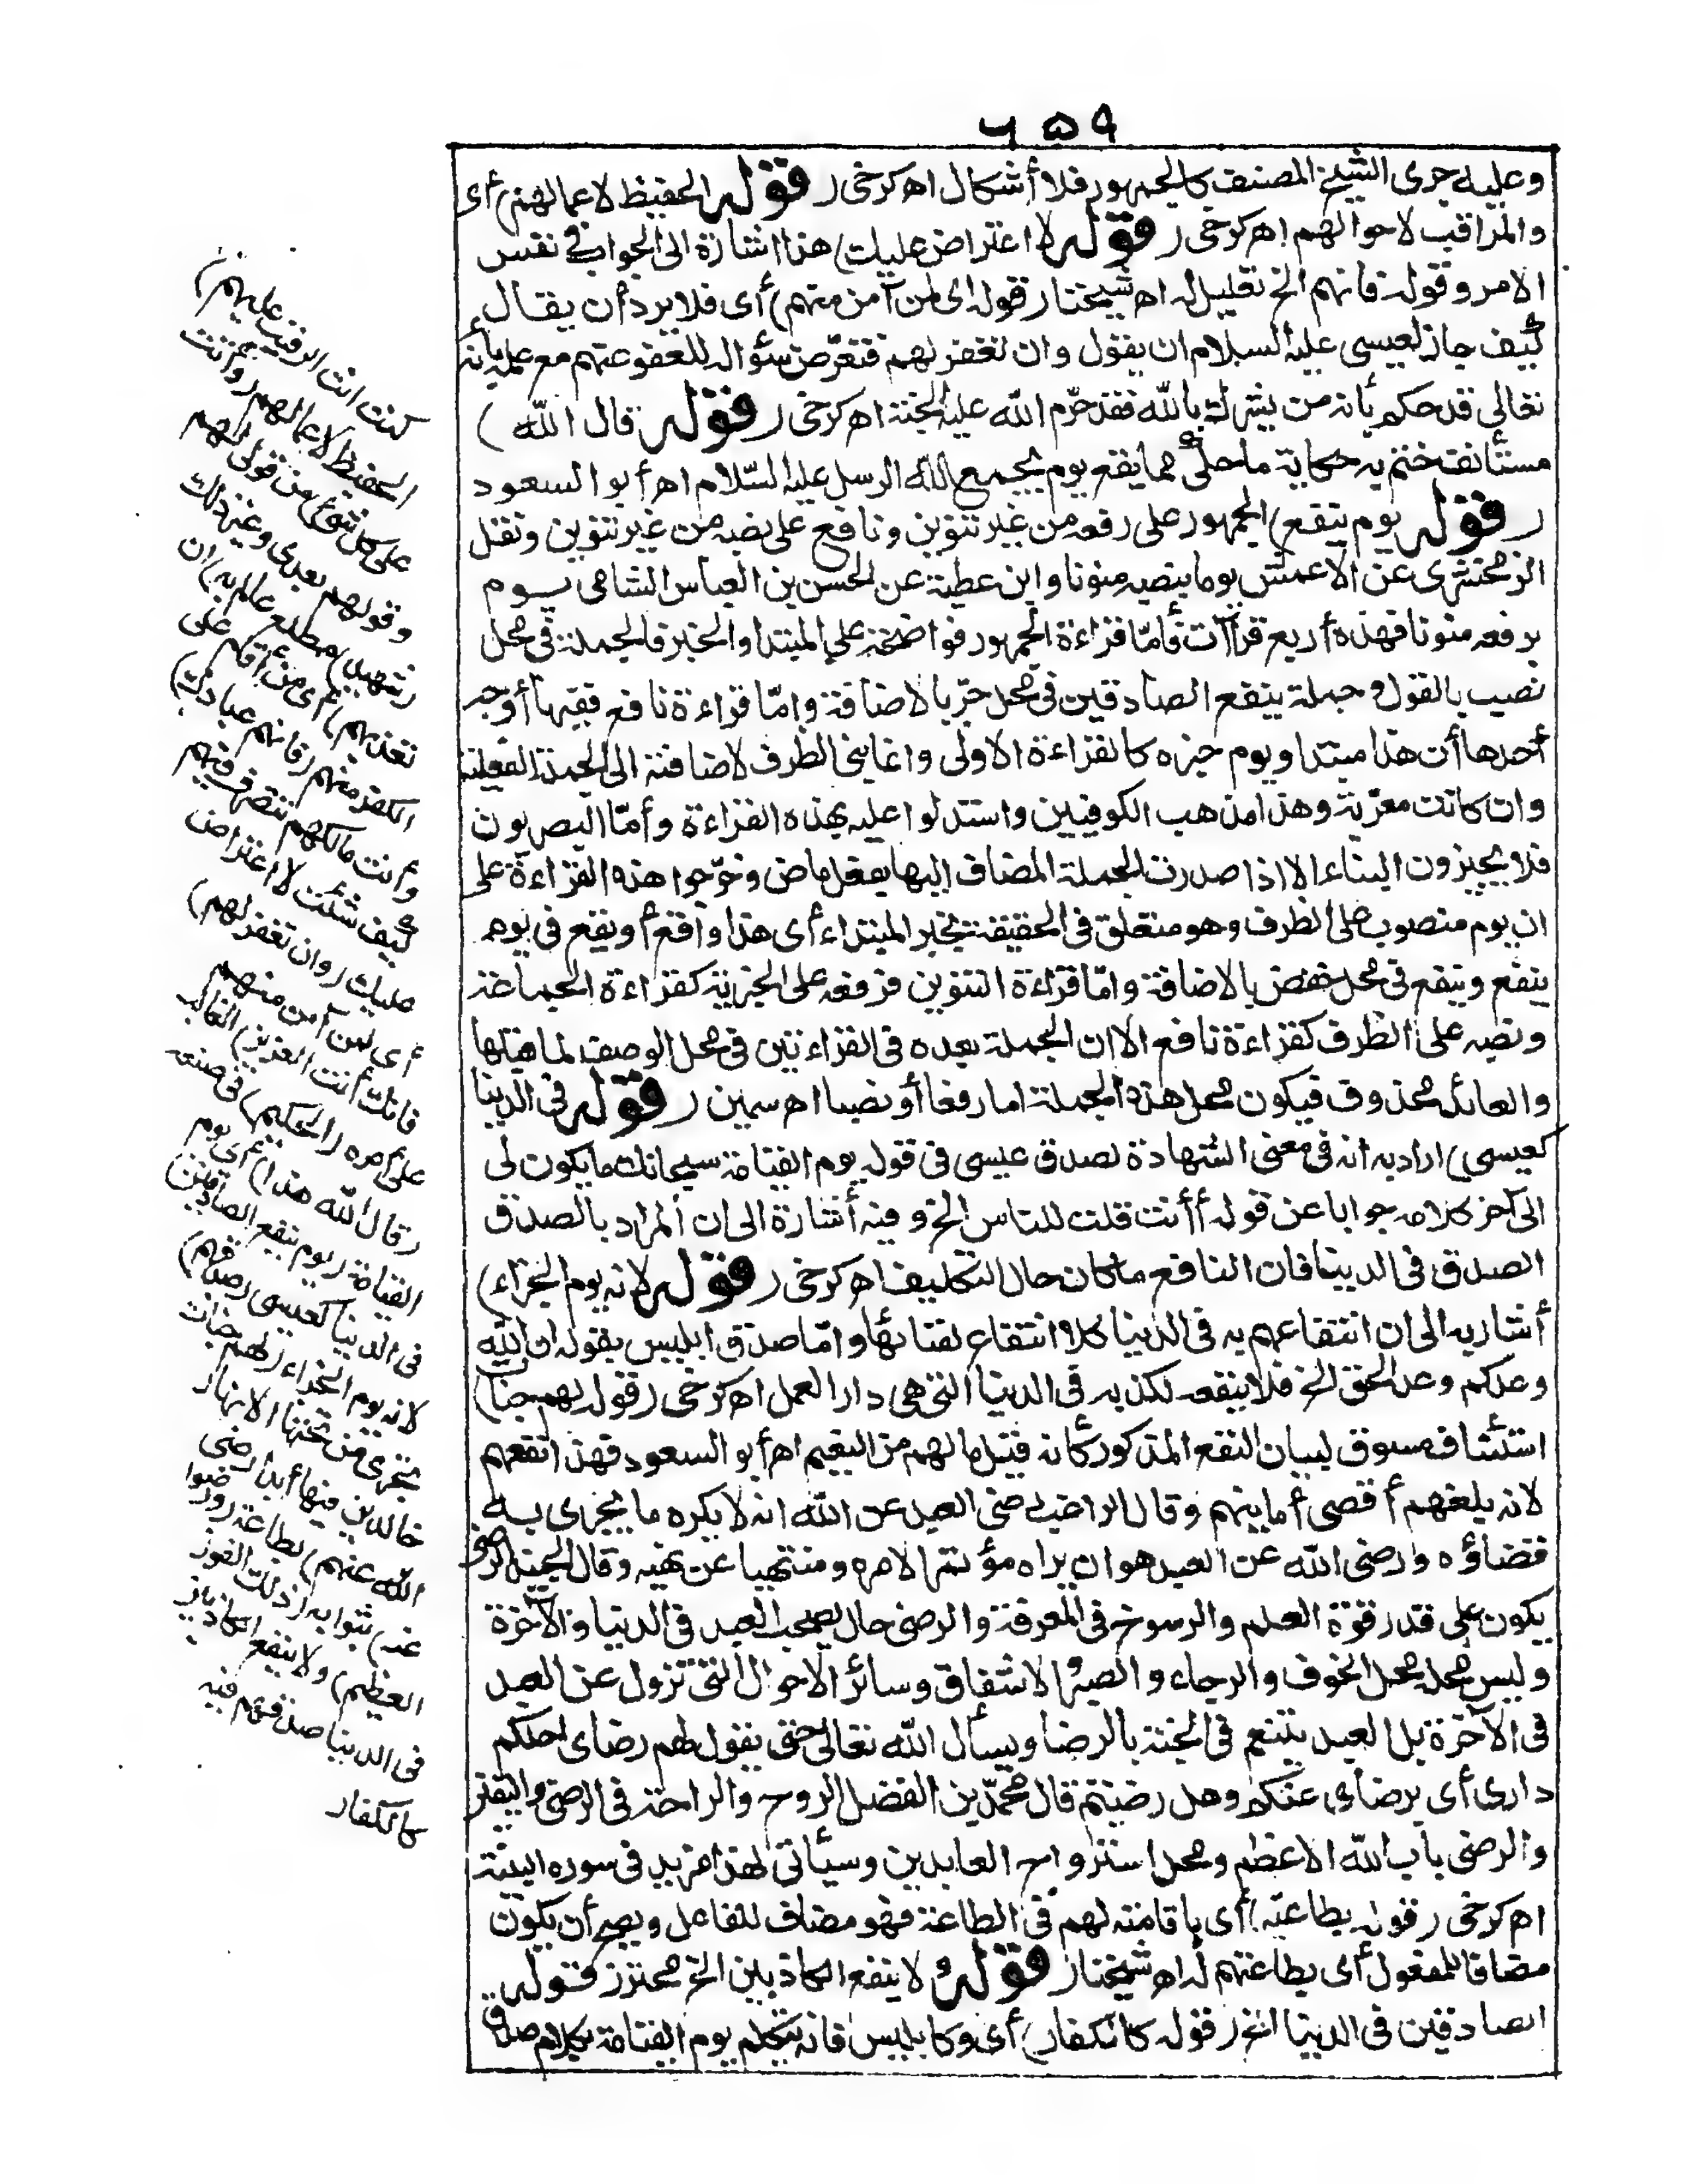 ٦٥٩
وعليه جرى الشيخ المصنف كالجمهور فلا أشكال اه كرخى ( قوله الحفيظ لاعمالهم) أى
والمراقب لاحوالهم اه كرخى ( قوله لا اعتراض عليك) هذا اشارة الى الجواب فى نفس
الامر وقوله فانهم الخ تعليل له اه شيخنا ( قوله اى لمن آمن منهم) أى فلا يرد أن يقال
كيف جاز لعيسى عليه السلام ان يقول وان تغفر لهم فتعرّض سؤاله للعفو عنهم مع علمه بأنه
تعالى قد حكم بأنه من يشرك بالله فقد حرّم الله عليه الجنة اه كرخى ( قوله قال الله )
مستأنف ختم به حكاية ما حكى مما يقع يوم يجمع الله الرسل عليه السّلام اه أبو السعود
( قوله يوم ينفع) الجمهور على رفعه من غير تنوين ونافع على نصبه من غير تنوين ونقل
الزمخشرى عن الاعمش يوما بنصبه منونا وابن عطية عن الحسن بن العباس الشامى يوم
برفعه منونا فهذه أربع قرآآت فأمّا قراءة الجمهور فواضحة على المبتدا والخبر فالجملة فى محل
نصب بالقول وجملة ينفع الصادقين فى محل جرّ بالاضافة وامّا قراءة نافع ففيها أوجه
أحدها أن هذا مبتدا ويوم خبره كالقراءة الاولى وانما بنى الظرف لاضافته الى الجملة الفعلية
وان كانت معرّبة وهذا مذهب الكوفيين واستدلوا عليه بهذه القراءة وأمّا البصريون
فلا يجيزون البناء الا اذا صدرت الجملة المضاف اليها بفعل ماض وخرّجوا هذه القراءة على
ان يوم منصوب على الظرف وهو متعلق فى الحقيقة بخبر المبتداء أى هذا واقع أو يقع فى يوم
ينفع وينفع فى محل خفض بالاضافة وامّا قراءة التنوين فرفعه على الخبرية كقراءة الجماعة
ونصبه على الظرف كقراءة نافع الا ان الجملة بعده فى القراءتين فى محل الوصف لما قبلها
والعائد محذوف فيكون محل هذه الجملة اما رفعا أو نصبا اه سمين ( قوله فى الدنيا
كعيسى) اراد به انه فى معنى الشهادة لصدق عيسى فى قوله يوم القيامة سبحانك ما يكون لى
الى آخر كلامه جوابا عن قوله أأنت قلت للناس الخ وفيه أشارة الى ان المراد بالصدق
الصدق فى الدنيا فان النافع ما كان حال التكليف اه كرخى ( قوله لانه يوم الجزاء)
أشار به الى ان انتفاعهم به فى الدنيا كلا انتفاع لفنائها وامّا صدق ابليس بقوله ان الله
وعدكم وعد الحق الخ فلا ينفعه لكذبه فى الدنيا التى هى دار العمل اه كرخى ( قوله لهم جنات)
استئناف مسوق لبيان النفع المذكور كأنه قيل ما لهم من النعيم اه أبو السعود فهذا نفعهم
لانه بلغهم أقصى أمانيهم وقال الراغب رضى العبد عن الله انه لا يكره ما يجرى به
قضاؤه ورضى الله عن العبد هو ان يراه مؤتمرا لامره ومنتهيا عن نهيه وقال الجنيد الرضى
يكون على قدر قوّة العلم والرسوخ فى المعرفة والرضى حال يصحب العبد فى الدنيا والآخرة
وليس محله محل الخوف والرجاء والصبر والاشفاق وسائر الاحوال التى تزول عن العبد
فى الآخرة بل العبد يتنعم فى الجنة بالرضا ويسأل الله تعالى حتى يقول لهم رضاى احلكم
دارى أى برضاى عنكم وهل رضيتم قال محمّد بن الفضل الروح والراحة فى الرضى واليقين
والرضى باب الله الاعظم ومحل استرواح العابدين وسيأتى لهذا مزيد فى سوره البينة
اه كرخى ( قوله بطاعته) أى باقامته لهم فى الطاعة فهو مضاف للفاعل ويصح أن يكون
مضافا للمفعول أى بطاعتهم له اه شيخنا ( قوله ولا ينفع الكاذبين الخ محترز قوله
الصادقين فى الدنيا الخ ( قوله كالكفار) أى وكابليس فانه يتكلم يوم القيامة بكلام صدق
كنت انت الرقيب عليهم)
الحفيظ لاعمالهم (وأنت
على كل شئ) من قولى لهم
وقولهم بعدى وغير ذلك
(شهيد) مطلع عالم به (ان
تعذبهم) أى من أقام على
الكفر منهم (فانهم عبادك)
وأنت مالكهم تتصرف فيهم
كيف شئت لا اعتراض
عليك (وان تغفر لهم)
أى لمن آمن منهم
فانك أنت العزيز) الغالب
على أمره (الحكيم) فى صنعه
(قال الله هذا) أى يوم
القيامة (يوم ينفع الصادقين
فى الدنيا كعيسى (صدقهم)
لانه يوم الجزاء (لهم جنات
تجرى من تحتها الانهار
خالدين فيها أبدا رضى
الله عنهم) بطاعته (ورضوا
عنه) بثوابه (ذلك الفوز
العظيم) ولا ينفع الكاذبين
فى الدنيا صدقهم فيه
كالكفار